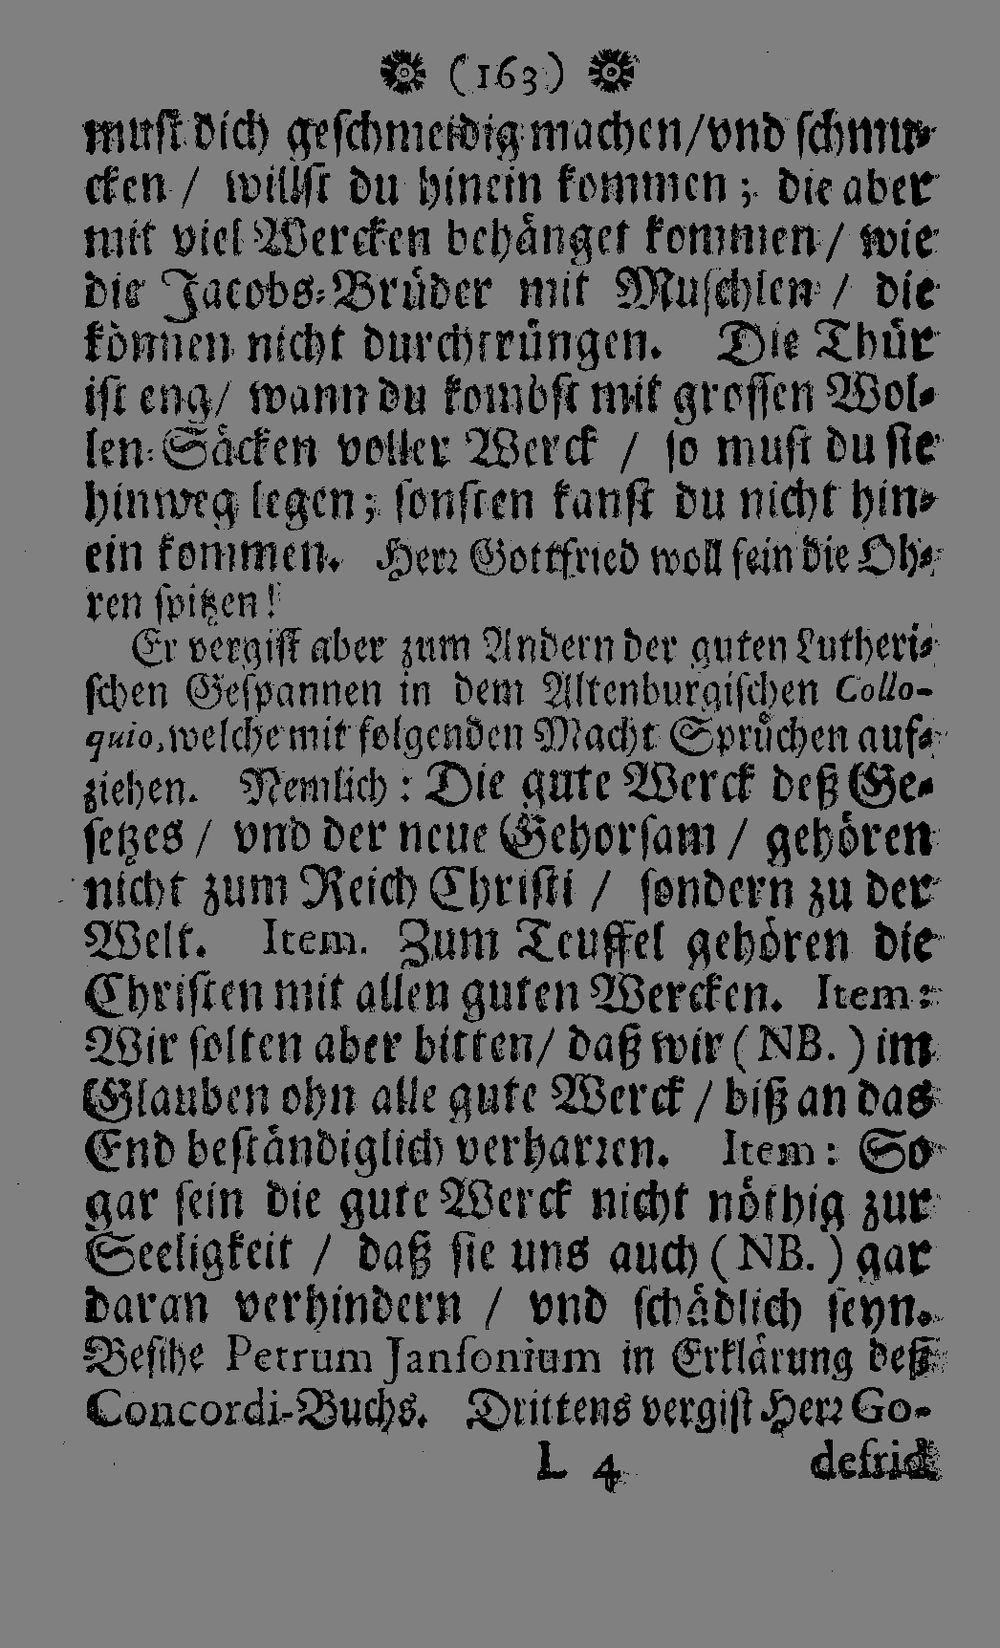 (163)
must dich geschmeidig machen/vnd schmu-
cken / willst du hinein kommen; die aber
mit viel Wercken behänget kommen/ wie
die Jacobs-Brüder mit Muschlen / die
können nicht durchtrüngen. Die Thür
ist eng/ wann du kombst mit grossen Wol-
len-Säcken voller Werck / so must du sie
hinweg legen; sonsten kanst du nicht hin-
ein kommen. Herr Gottfried woll sein die Oh-
ren spitzen!
Er vergist aber zum Andern der guten Lutheri-
schen Gespannen in dem Altenburgischen Collo-
quio, welche mit folgenden Macht Sprüchen auf-
ziehen. Nemlich: Die gute Werck deß Ge-
setzes / vnd der neue Gehorsam / gehören
nicht zum Reich Christi / sondern zu der
Welt. Item. Zum Teuffel gehören die
Christen mit allen guten Wercken. Item:
Wir solten aber bitten/ daß wir (NB.) im
Glauben ohn alle gute Werck / biß an das
End beständiglich verharren. Item: So
gar sein die gute Werck nicht nöthig zur
Seeligkeit / daß sie uns auch (NB.) gar
daran verhindern / vnd schädlich seyn.
Besihe Petrum Jansonium in Erklärung deß
Concordi-Buchs. Drittens vergist Herr Go-
L 4 defrid